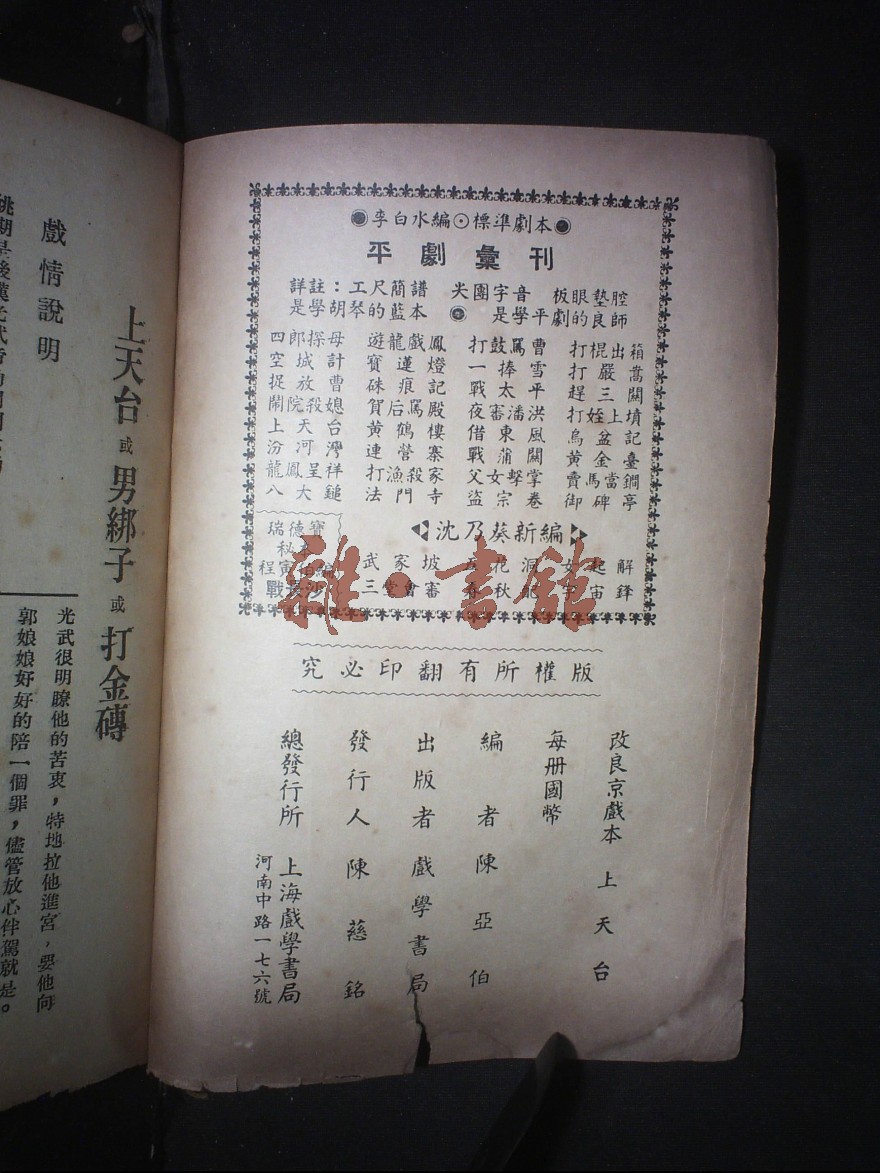 李白水編⊙標準劇本
平劇彙刊
詳註：工尺簡譜 尖團字音 板眼墊腔
是學胡琴的藍本 是學平劇的良師
四郎探母 遊龍戲鳳 打鼓罵曹 打棍出箱
空城計 寶蓮燈 一捧雪 打嚴嵩
捉放曹 硃痕記 戰太平 趕三關
鬧院殺媳 賀后罵殿 夜審潘洪 打姪上墳
上天台 黃鶴樓 借東風 烏盆記
汾河灣 連營寨 戰蒲關 黃金臺
龍鳳呈祥 打漁殺家 父女擊掌 賣馬當鐧
八大鎚 法門寺 盜宗卷 御碑亭
瑞德寶
秘本
程寅伯編
戰長沙
沈乃葵新編
武家坡 花洞 女起解
三堂會審 春秋配 宇宙鋒
版權所有翻印必究
改良京戲本 上天台
每册國幣
編者 陳亞伯
出版者 戲學書局
發行人 陳慈銘
總發行所 上海戲學書局
河南中路一七六號
上天台 或 男綁子 或 打金磚
戲情說明
光武很明瞭他的苦衷，特地拉他進宮，要他向
郭娘娘好好的陪一個罪，儘管放心伴駕就是。
雜·書館